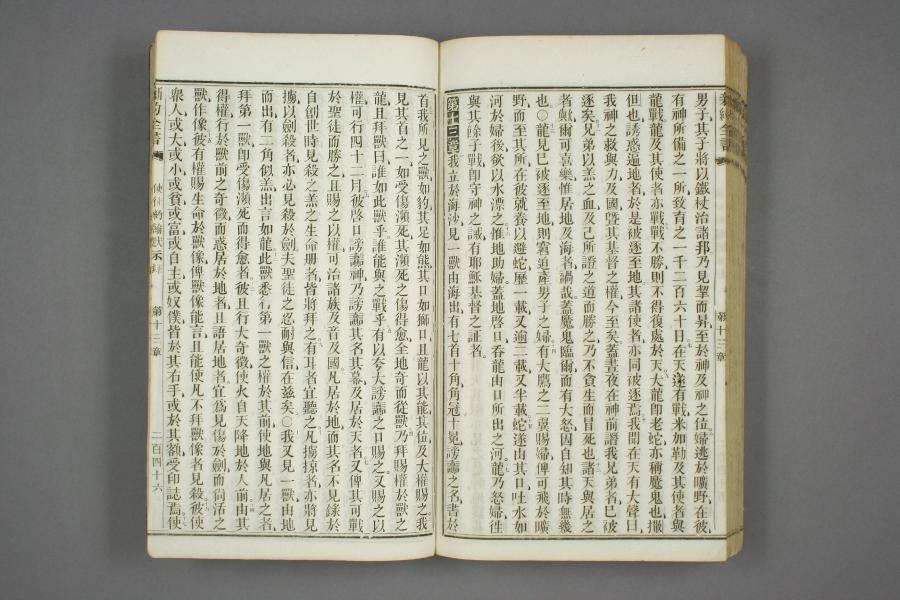 新約全書
第十三章
男子其子將以鐵杖治諸邦乃見挈而昇至於神及神之位婦逃於曠野在彼
有神所備之一所致育之一千二百六十日在天遂有戰米加勒及其使者與
龍戰龍及其使者亦戰戰不勝則不得復處於天大龍卽老蛇亦稱魔鬼也撒
但也誘惑遍地者於是被逐至地其諸使者亦同被逐焉我聞在天有大聲曰
我神之救與力及國曁其基督之權今至矣蓋晝夜在神前證我兄弟者已被
逐矣兄弟以羔之血及己所證之道而勝之乃不貪生而冒死也諸天與居之
者歟爾可喜樂惟居地及海者禍哉蓋魔鬼臨爾而有大怒因自知其時無幾
也〇龍見已被逐至地則窘迫產男子之婦婦有大鷹之二翼賜婦俾可飛於曠
野而至其所在彼就養以避蛇歷一載又逾二載又半載蛇遂由其口吐水如
河於婦後欲以水漂之惟地助婦蓋地啟口吞龍由口所出之河龍乃怒婦往
與其餘子戰卽守神之誡有耶穌基督之証者
第十三章我立於海沙見一獸由海出有七首十角角冠十冕謗讟之名書於
首我所見之獸如豹其足如熊其口如獅口且龍以其能其位及大權賜之我
見其首之一如受傷瀕死其瀕死之傷得愈全地奇而從獸乃拜賜權於獸之
龍且拜獸曰誰如此獸乎誰能與之戰乎有以夸大謗讟之口賜之又賜之以
權可行四十二月彼啟口謗讟神乃謗讟其名其幕及居於天者又俾其可戰
於聖徒而勝之且賜之以權可治諸族及音及國凡居於地而其名不見錄於
自創世時見殺之羔之生命册者皆將拜之有耳者宜聽之凡擄掠者亦將見
擄以劍殺者亦必見殺於劍夫聖徒之忍耐與信在茲矣〇我又見一獸由地
而出有二角似羔出言如龍此獸悉行第一獸之權於其前使地與凡居之者
拜第一獸卽受傷瀕死而得愈者彼且行大奇徵使火自天降地於人前由其
得權行於獸前之奇徵而惑居於地者且語居地者宜爲見傷於劍而尚活之
獸作像彼有權賜生命於獸像俾獸像能言且能使凡不拜獸像者見殺彼使
衆人或大或小或貧或富或自主或奴僕皆於其右手或於其額受印誌焉使
新約全書
使徒約翰默示錄
第十三章
二百四十六